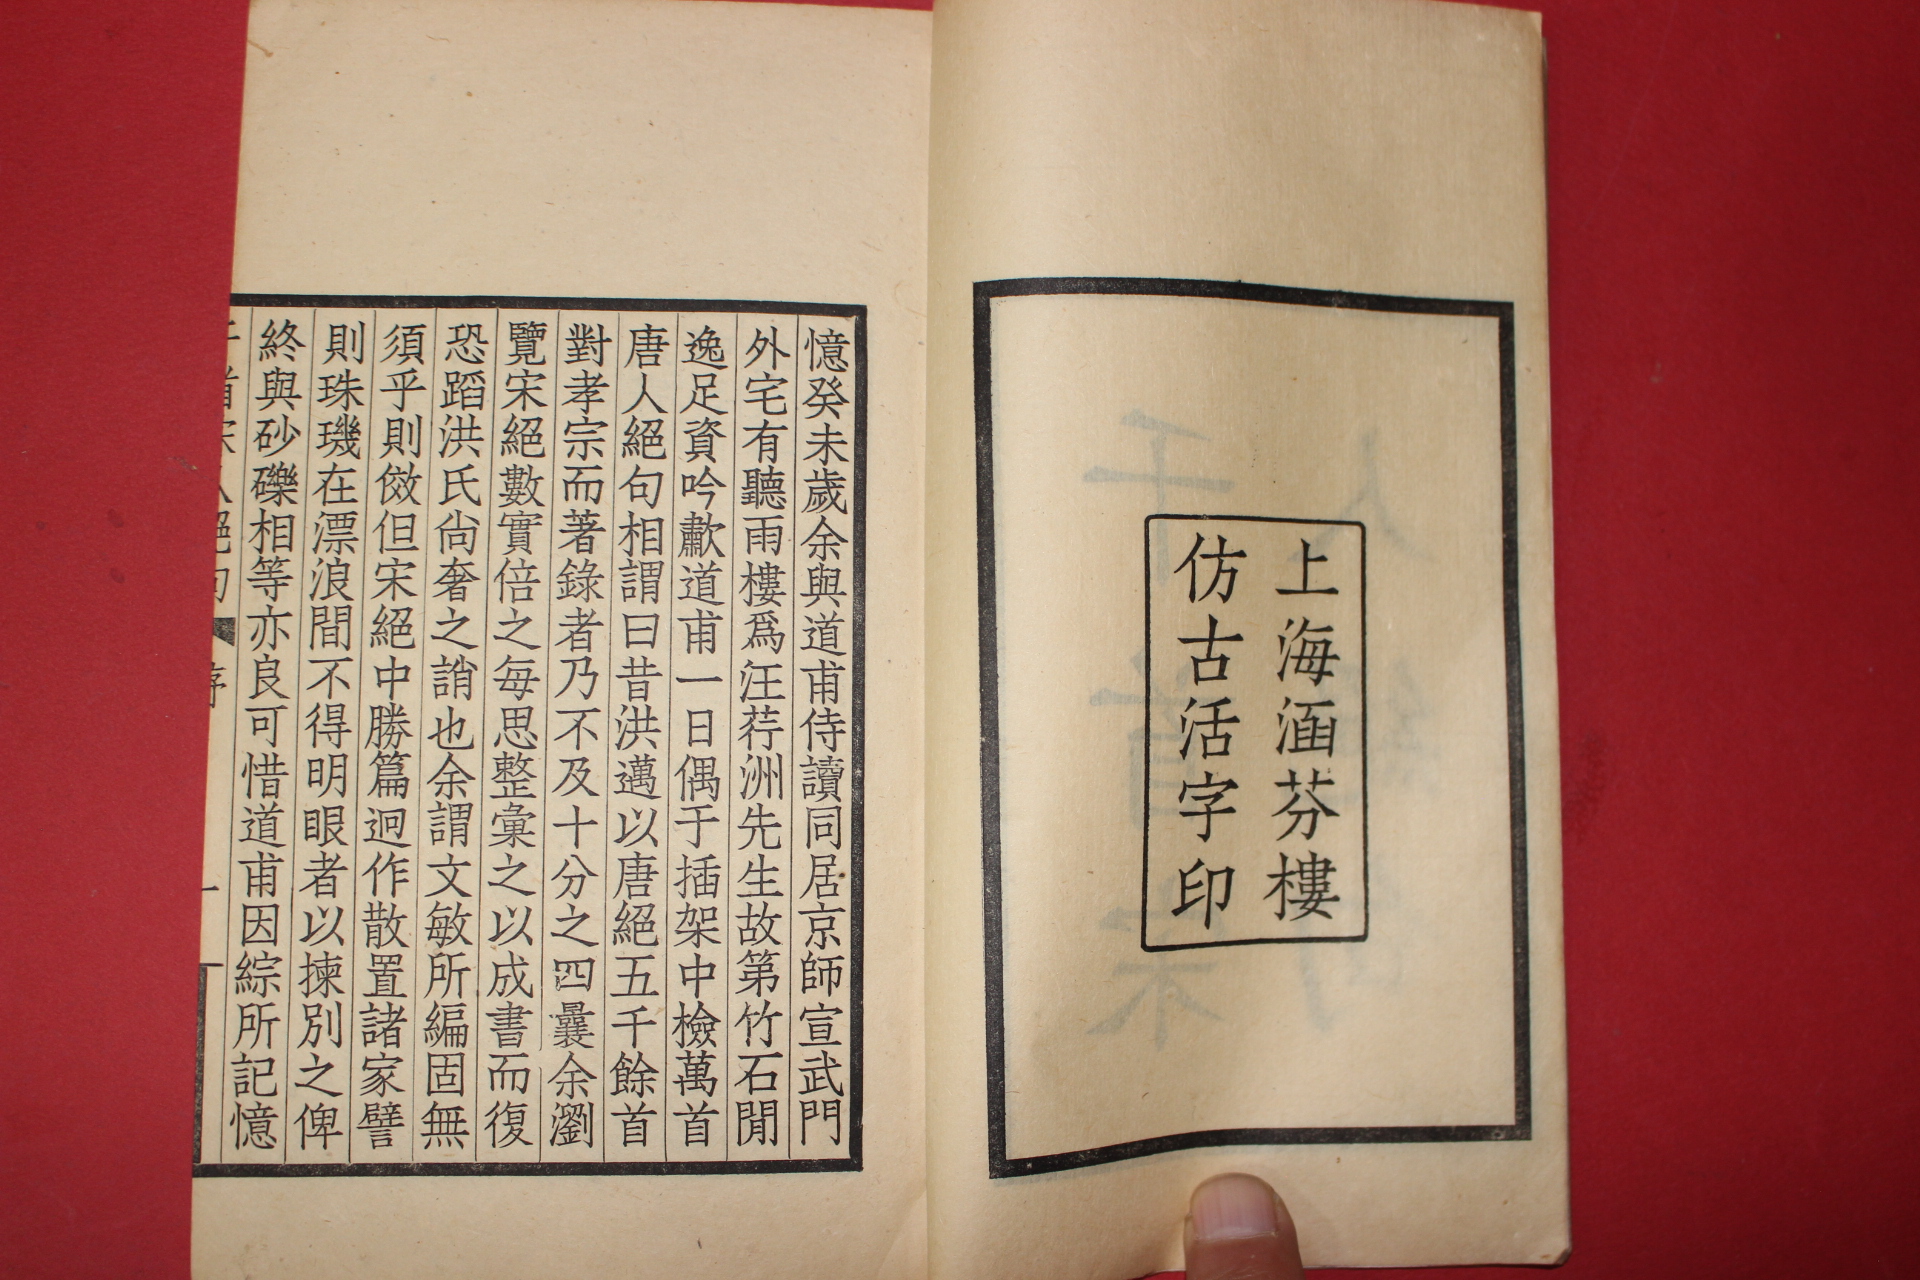 上海涵芬樓
仿古活字印
憶癸未歲余與道甫侍讀同居京師宣武門
外宅有聽雨樓爲汪荇洲先生故第竹石閒
逸足資吟歗道甫一日偶于插架中檢萬首
唐人絕句相謂曰昔洪邁以唐絕五千餘首
對孝宗而著錄者乃不及十分之四曩余瀏
覽宋絕數實倍之每思整彙之以成書而復
恐蹈洪氏尙奢之誚也余謂文敏所編固無
須乎則傚但宋絕中勝篇迥作散置諸家譬
則珠璣在漂浪間不得明眼者以揀別之俾
終與砂礫相等亦良可惜道甫因綜所記憶
序
一